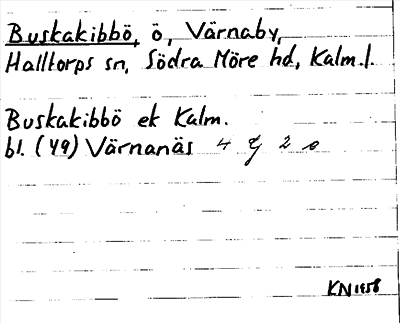 Buskakibbö, ö, Värnaby,
Halltorps sn, Södra Möre hd, Kalm.l.
Buskakibbö ek Kalm.
bl. (49) Värnanäs 4 g 2 o
KN 1958